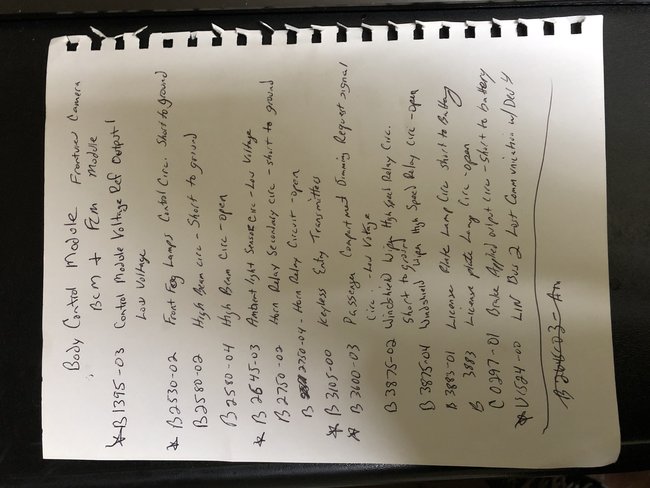 Body Control Module Frontview Camera
BCM + FCM Module
* B1395-03 Control Module Voltage Ref Output 1
Low Voltage
* B2530-02 Front Fog Lamps Control Circ. Short to ground
B2580-02 High Beam circ - Short to ground
B2580-04 High Beam Circ - open
* B2645-03 Ambient light Sensor Circ - Low Voltage
B2750-02 Horn Relay Secondary circ - short to ground
B 2750-04 - Horn Relay Circuit - open
* B3105-00 Keyless Entry Transmitters
* B3600-03 Passenger Compartment Dimming Request signal
Circ. - Low Voltage
B3875-02 Windshield Wiper High Speed Relay Circ.
Short to ground
B3875-04 Windshield Wiper High Speed Relay circ - open
B3883-01 License Plate Lamp Circ Short to Battery
B 3883 License plate Lamp Circ - open
C0297-01 Brake Applied output circu - Short to battery
* U1524-00 LIN Bus 2 Lost Communication w/ Dev 4